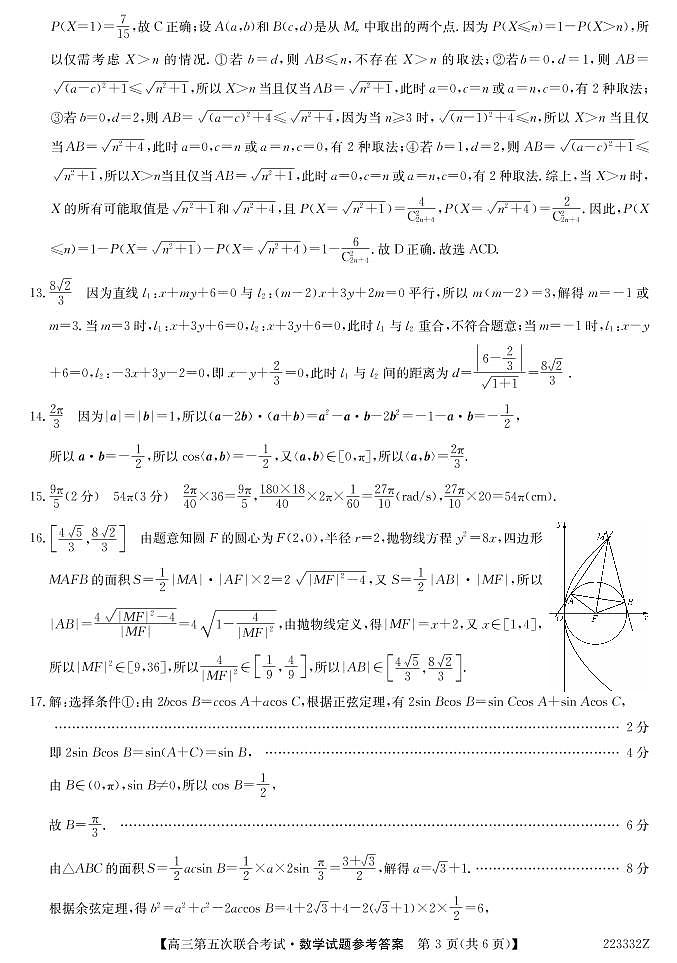 P(X=1)=7/15,故 C 正确;设 A(a,b)和 B(c,d)是从 Mₙ 中取出的两个点.因为 P(X≤n)=1-P(X>n),所
以仅需考虑 X>n 的情况.①若 b=d,则 AB≤n,不存在 X>n 的取法;②若b=0,d=1,则 AB=
√((a-c)²+1)≤√(n²+1),所以 X>n 当且仅当AB=√(n²+1),此时 a=0,c=n 或 a=n,c=0,有 2 种取法;
③若b=0,d=2,则 AB=√((a-c)²+4)≤√(n²+4),因为当 n≥3 时,√((n-1)²+4)≤n,所以 X>n 当且仅
当AB=√(n²+4),此时 a=0,c=n 或 a=n,c=0,有 2 种取法;④若 b=1,d=2,则 AB=√((a-c)²+1)≤
√(n²+1),所以X>n当且仅当AB=√(n²+1),此时 a=0,c=n 或 a=n,c=0,有 2 种取法.综上,当 X>n 时,
X 的所有可能取值是√(n²+1)和√(n²+4),且 P(X=√(n²+1))=4/C²₂ₙ₊₄,P(X=√(n²+4))=2/C²₂ₙ₊₄.因此,P(X
≤n)=1-P(X=√(n²+1))-P(X=√(n²+4))=1-6/C²₂ₙ₊₄.故 D 正确.故选 ACD.
13.8√2/3 因为直线 l₁:x+my+6=0 与 l₂:(m-2)x+3y+2m=0 平行,所以 m(m-2)=3,解得 m=-1 或
m=3.当 m=3 时,l₁:x+3y+6=0,l₂:x+3y+6=0,此时 l₁ 与 l₂ 重合,不符合题意;当 m=-1 时,l₁:x-y
+6=0,l₂:-3x+3y-2=0,即 x-y+2/3=0,此时 l₁ 与 l₂ 间的距离为 d=|6-2/3|/√(1+1)=8√2/3.
14.2π/3 因为|a|=|b|=1,所以(a-2b)·(a+b)=a²-a·b-2b²=-1-a·b=-1/2,
所以 a·b=-1/2,所以 cos⟨a,b⟩=-1/2,又⟨a,b⟩∈[0,π],所以⟨a,b⟩=2π/3.
15.9π/5(2 分) 54π(3 分) 2π/40×36=9π/5,180×18/40×2π×1/60=27π/10(rad/s),27π/10×20=54π(cm).
16.[4√5/3,8√2/3] 由题意知圆 F 的圆心为 F(2,0),半径 r=2,抛物线方程 y²=8x,四边形
MAFB 的面积 S=1/2|MA|·|AF|×2=2√(|MF|²-4),又 S=1/2|AB|·|MF|,所以
|AB|=4√(|MF|²-4)/|MF|=4√(1-4/|MF|²),由抛物线定义,得|MF|=x+2,又 x∈[1,4],
所以|MF|²∈[9,36],所以4/|MF|²∈[1/9,4/9],所以|AB|∈[4√5/3,8√2/3].
y
M
A
B
O
F
x
17.解:选择条件①:由 2bcos B=ccos A+acos C,根据正弦定理,有 2sin Bcos B=sin Ccos A+sin Acos C,
…… 2 分
即 2sin Bcos B=sin(A+C)=sin B, …… 4 分
由 B∈(0,π),sin B≠0,所以 cos B=1/2,
故 B=π/3. …… 6 分
由△ABC 的面积 S=1/2acsin B=1/2×a×2sin π/3=(3+√3)/2,解得 a=√3+1. …… 8 分
根据余弦定理,得 b²=a²+c²-2accos B=4+2√3+4-2(√3+1)×2×1/2=6,
【高三第五次联合考试·数学试题参考答案 第 3 页(共 6 页)】 223332Z